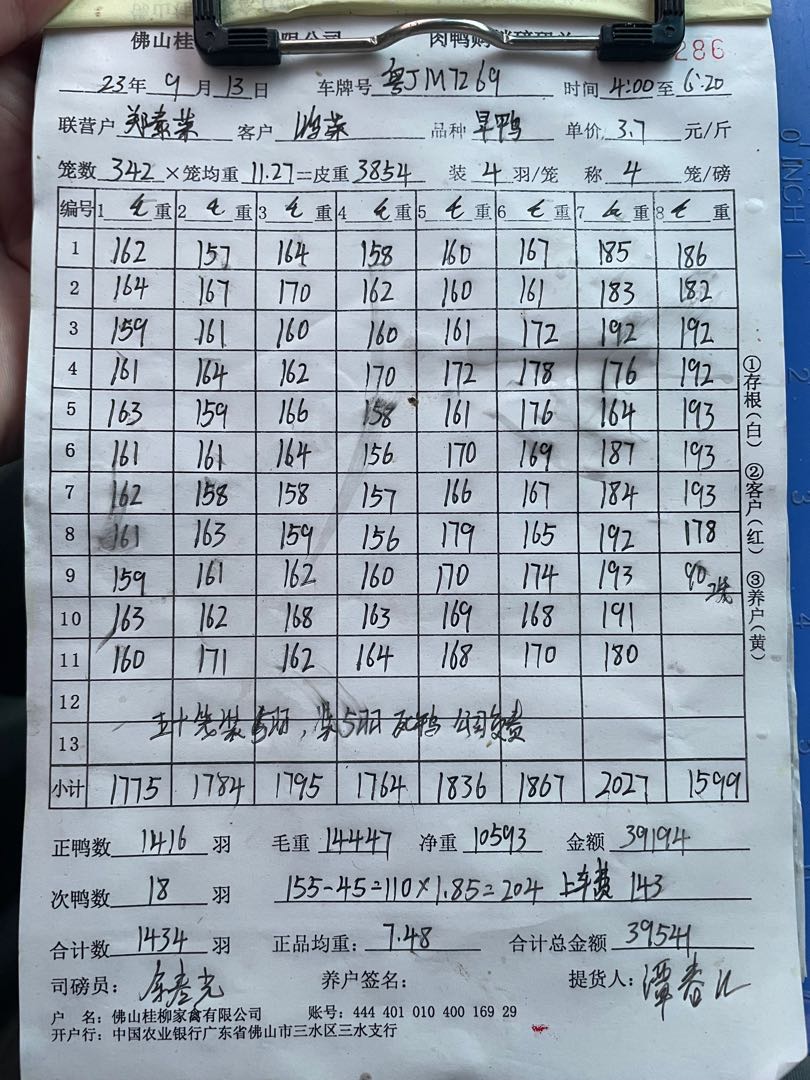 佛山桂 限公司 肉鸭购销磅码单 286
23年 9月 13日 车牌号 粤JM7269 时间 4:00至 6:20
联营户 郑素荣 客户 鸿荣 品种 旱鸭 单价 3.7 元/斤
笼数 342 ×笼均重 11.27=皮重 3854 装 4 羽/笼 称 4 笼/磅
编号 1 毛重 2 毛重 3 毛重 4 毛重 5 毛重 6 毛重 7 毛重 8 毛重
1 162 157 164 158 160 167 185 186
2 164 167 170 162 160 161 183 182
3 159 161 160 160 161 172 192 192
4 161 164 162 170 172 178 176 192
5 163 159 166 158 161 176 164 193
6 161 161 164 156 170 169 187 193
7 162 158 158 157 166 167 184 193
8 161 163 159 156 179 165 192 178
9 159 161 162 160 170 174 193 90 2笼
10 163 162 168 163 169 168 191
11 160 171 162 164 168 170 180
12
五十笼装5羽, 5羽死鸭公司负责
13
小计 1775 1784 1795 1764 1836 1867 2027 1599
正鸭数 1416 羽 毛重 14447 净重 10593 金额 39194
次鸭数 18 羽 155-45=110×1.85=204 上车费 143
合计数 1434 羽 正品均重: 7.48 合计总金额 39541
司磅员: 养户签名: 提货人: 潭春
户 名: 佛山桂柳家禽有限公司 账号: 444 401 010 400 169 29
开户行: 中国农业银行广东省佛山市三水区三水支行
①存根(白) ②客户(红) ③养户(黄)
0 INCH 1
2
3
4
5